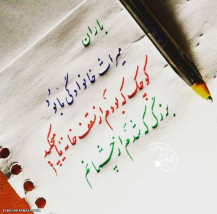 باران
میراث خانوادگی ما بود
کوچک که بودم از سقف خانه می‌چکید
بزرگ که شدم از چشمانم